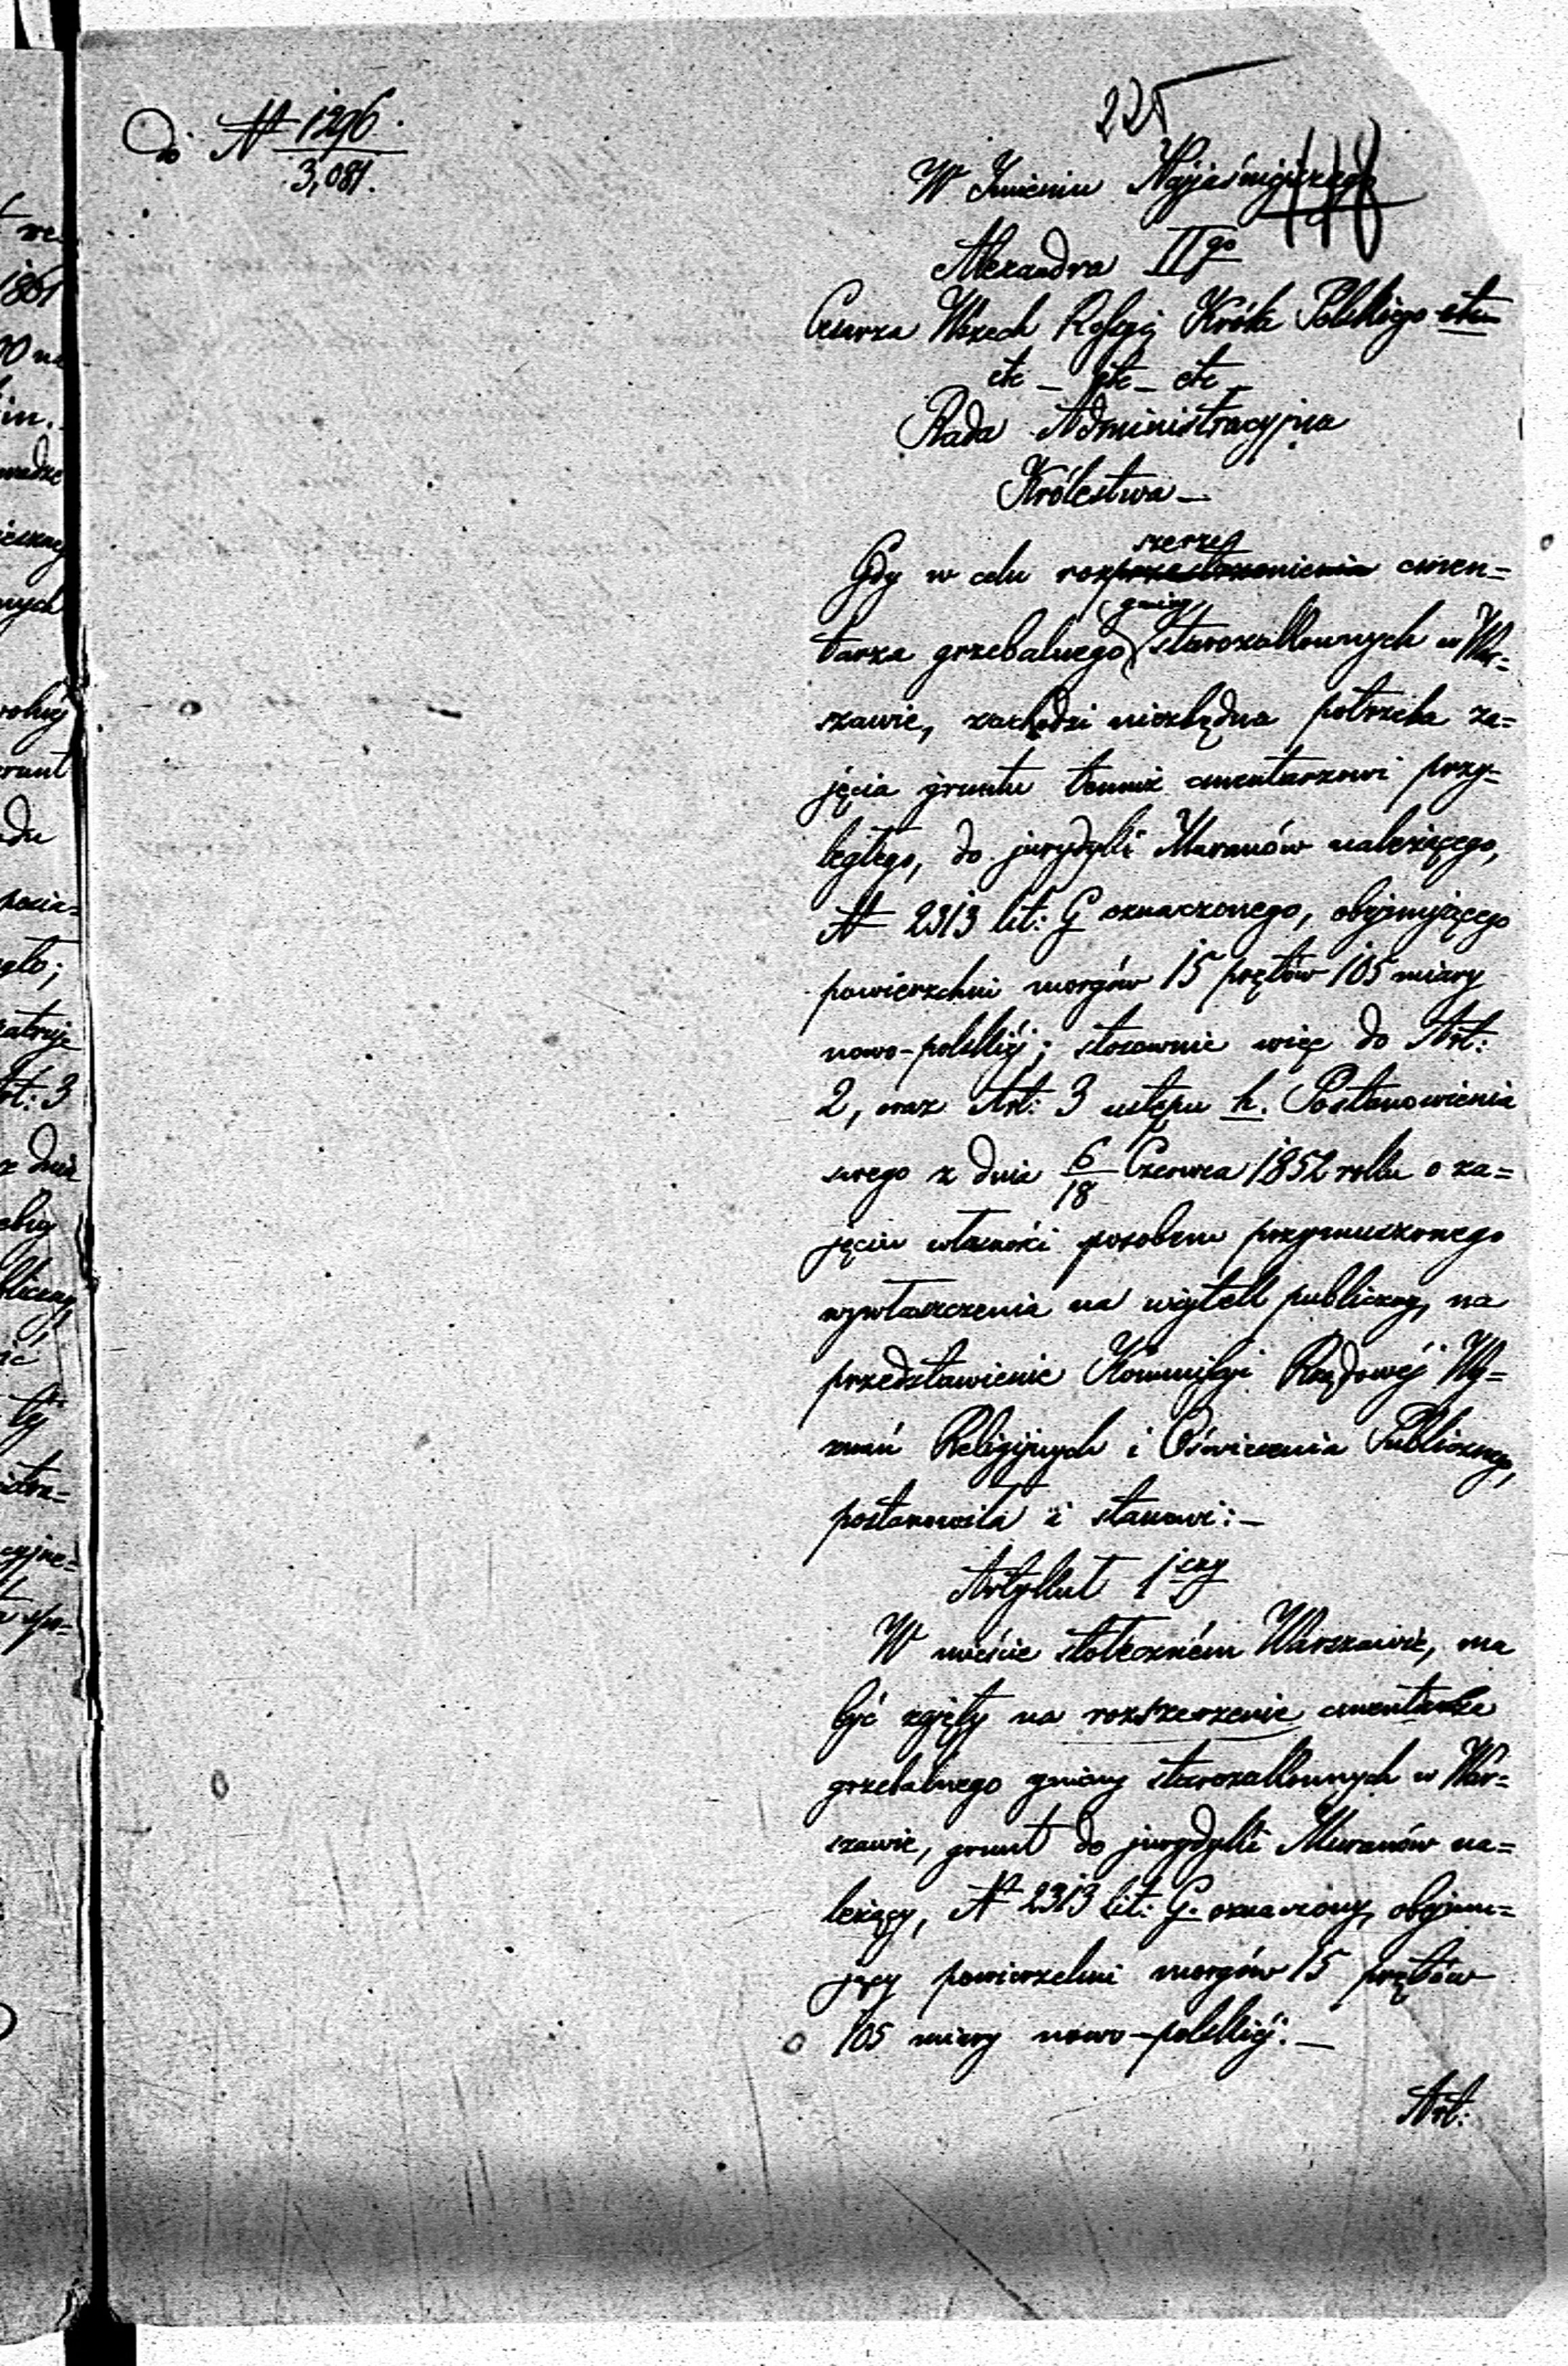 do № 1296.
3,081.
225
148
W Imieniu Najjaśniejszego
Alexandra IIgo
Cesarza Wszech Rossyi, Króla Polskiego etc
etc – etc – etc –
Rada Administracyjna
Królestwa –
szerze
Gdy w celu rozprzestrzenienia cmen=
gminy
tarza grzebalnego starozakonnych w War=
szawie, zachodzi niezbędna potrzeba za=
jęcia gruntu temuż cmentarzowi przy=
ległego, do jurydyki Muranów należącego,
№ 2313 lit: G oznaczonego, obejmującego
powierzchni morgów 15 prętów 105 miary
nowo-polskiéj; stosownie więc do Art:
2, oraz Art: 3 ustępu h. Postanowienia
swego z dnia 6/18 Czerwca 1852 roku o za=
jęciu własności sposobem przymuszonego
wywłaszczenia na użytek publiczny, na
przedstawienie Kommissyi Rządowéj Wy=
znań Religijnych i Oświecenia Publicznego,
postanowiła i stanowi: –
Artykuł 1szy
W mieście stołeczném Warszawie, ma
być zajęty na rozszerzenie cmentarza
grzebalnego gminy starozakonnych w War=
szawie, grunt do jurydyki Muranów na=
leżący, № 2313 lit: G. oznaczony, obejmu=
jący powierzchni morgów 15 prętów
105 miary nowo-polskiéj. –
Art: